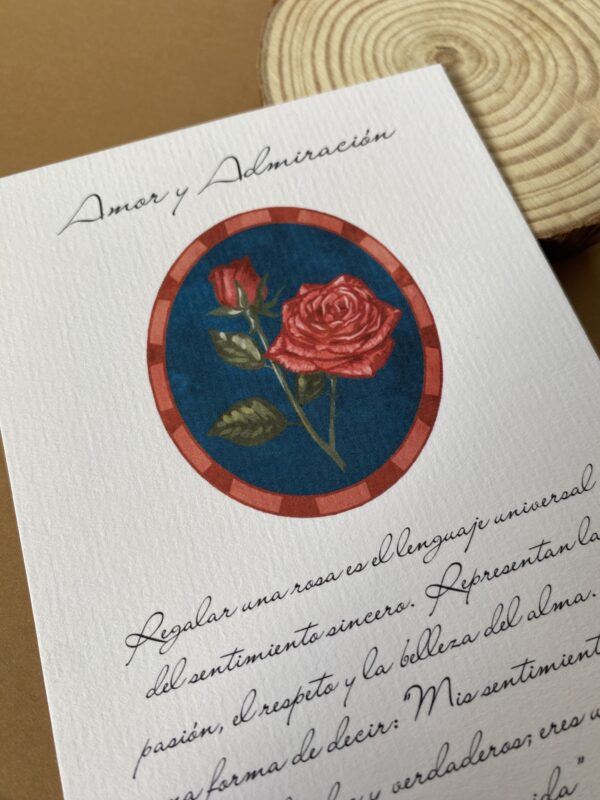 Amor y Admiración
Regalar una rosa es el lenguaje universal
del sentimiento sincero. Representan la
pasión, el respeto y la belleza del alma.
forma de decir: "Mis
y verdaderos; eres